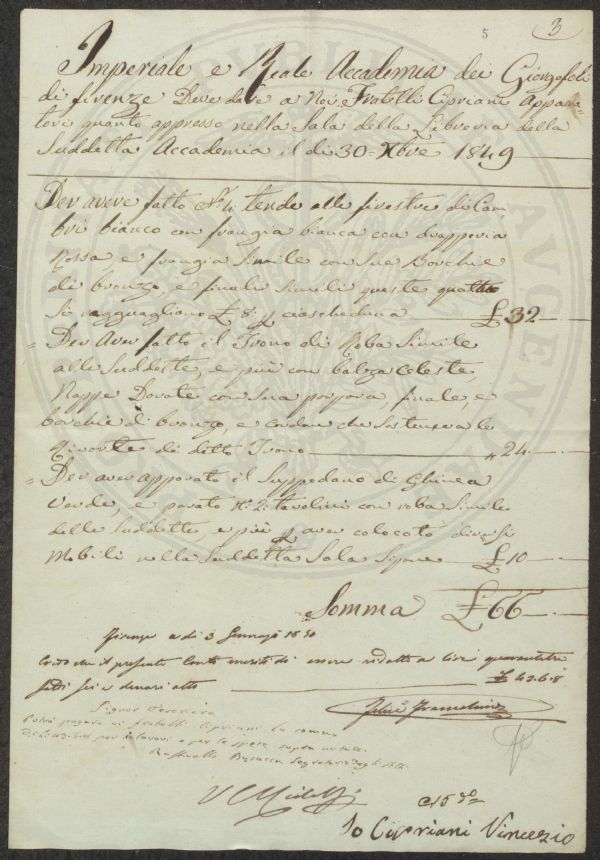 3
5
Imperiale e Reale Accademia dei Giorgofoli
di firenze Deve dare a Noi Fratelli Cipriani Appara=
tori quanto appresso nella Sala della Libreria della
Suddetta Accademia il di 30 = Xbre 1849
Per avere fatto N° 4 tende alle finestre di Cam=
bri bianco con frangia bianca con drapperia
Rossa e frangia Simile con Sue Borchie
di bronzo, e finali Simili queste quattro
Si ragguagliano £ 8 p ciascheduna £ 32
= Per Aver fatto il Trono di Roba Simile
alle Suddette, e più con balza Celeste,
Nappe Dorate con Sua finale, e
borchie di bronzo, e Cordon che Sostenera le
di detto Trono " 24
= Per aver apporato il Suppedano di Ghinea
Verde, e parato N: 2: tavolini con roba Simile
delle Suddette, e più p aver colocato diversi
Mobili nella Suddetta Sala £ 10
Somma £ 66
Firenze a di 3 Gennajo 1850
Credo che il presente Conto meriti di essere ridotto a lire quarantatre
soldi sei e denari otto £ 43.6.8
Signor Tesoriere
Potrà pagare ai fratelli Cipriani la somma
di per lavori e per le spese sopra notate.
Raffaello Segretario degli Atti
Io Cipriani Vincezio